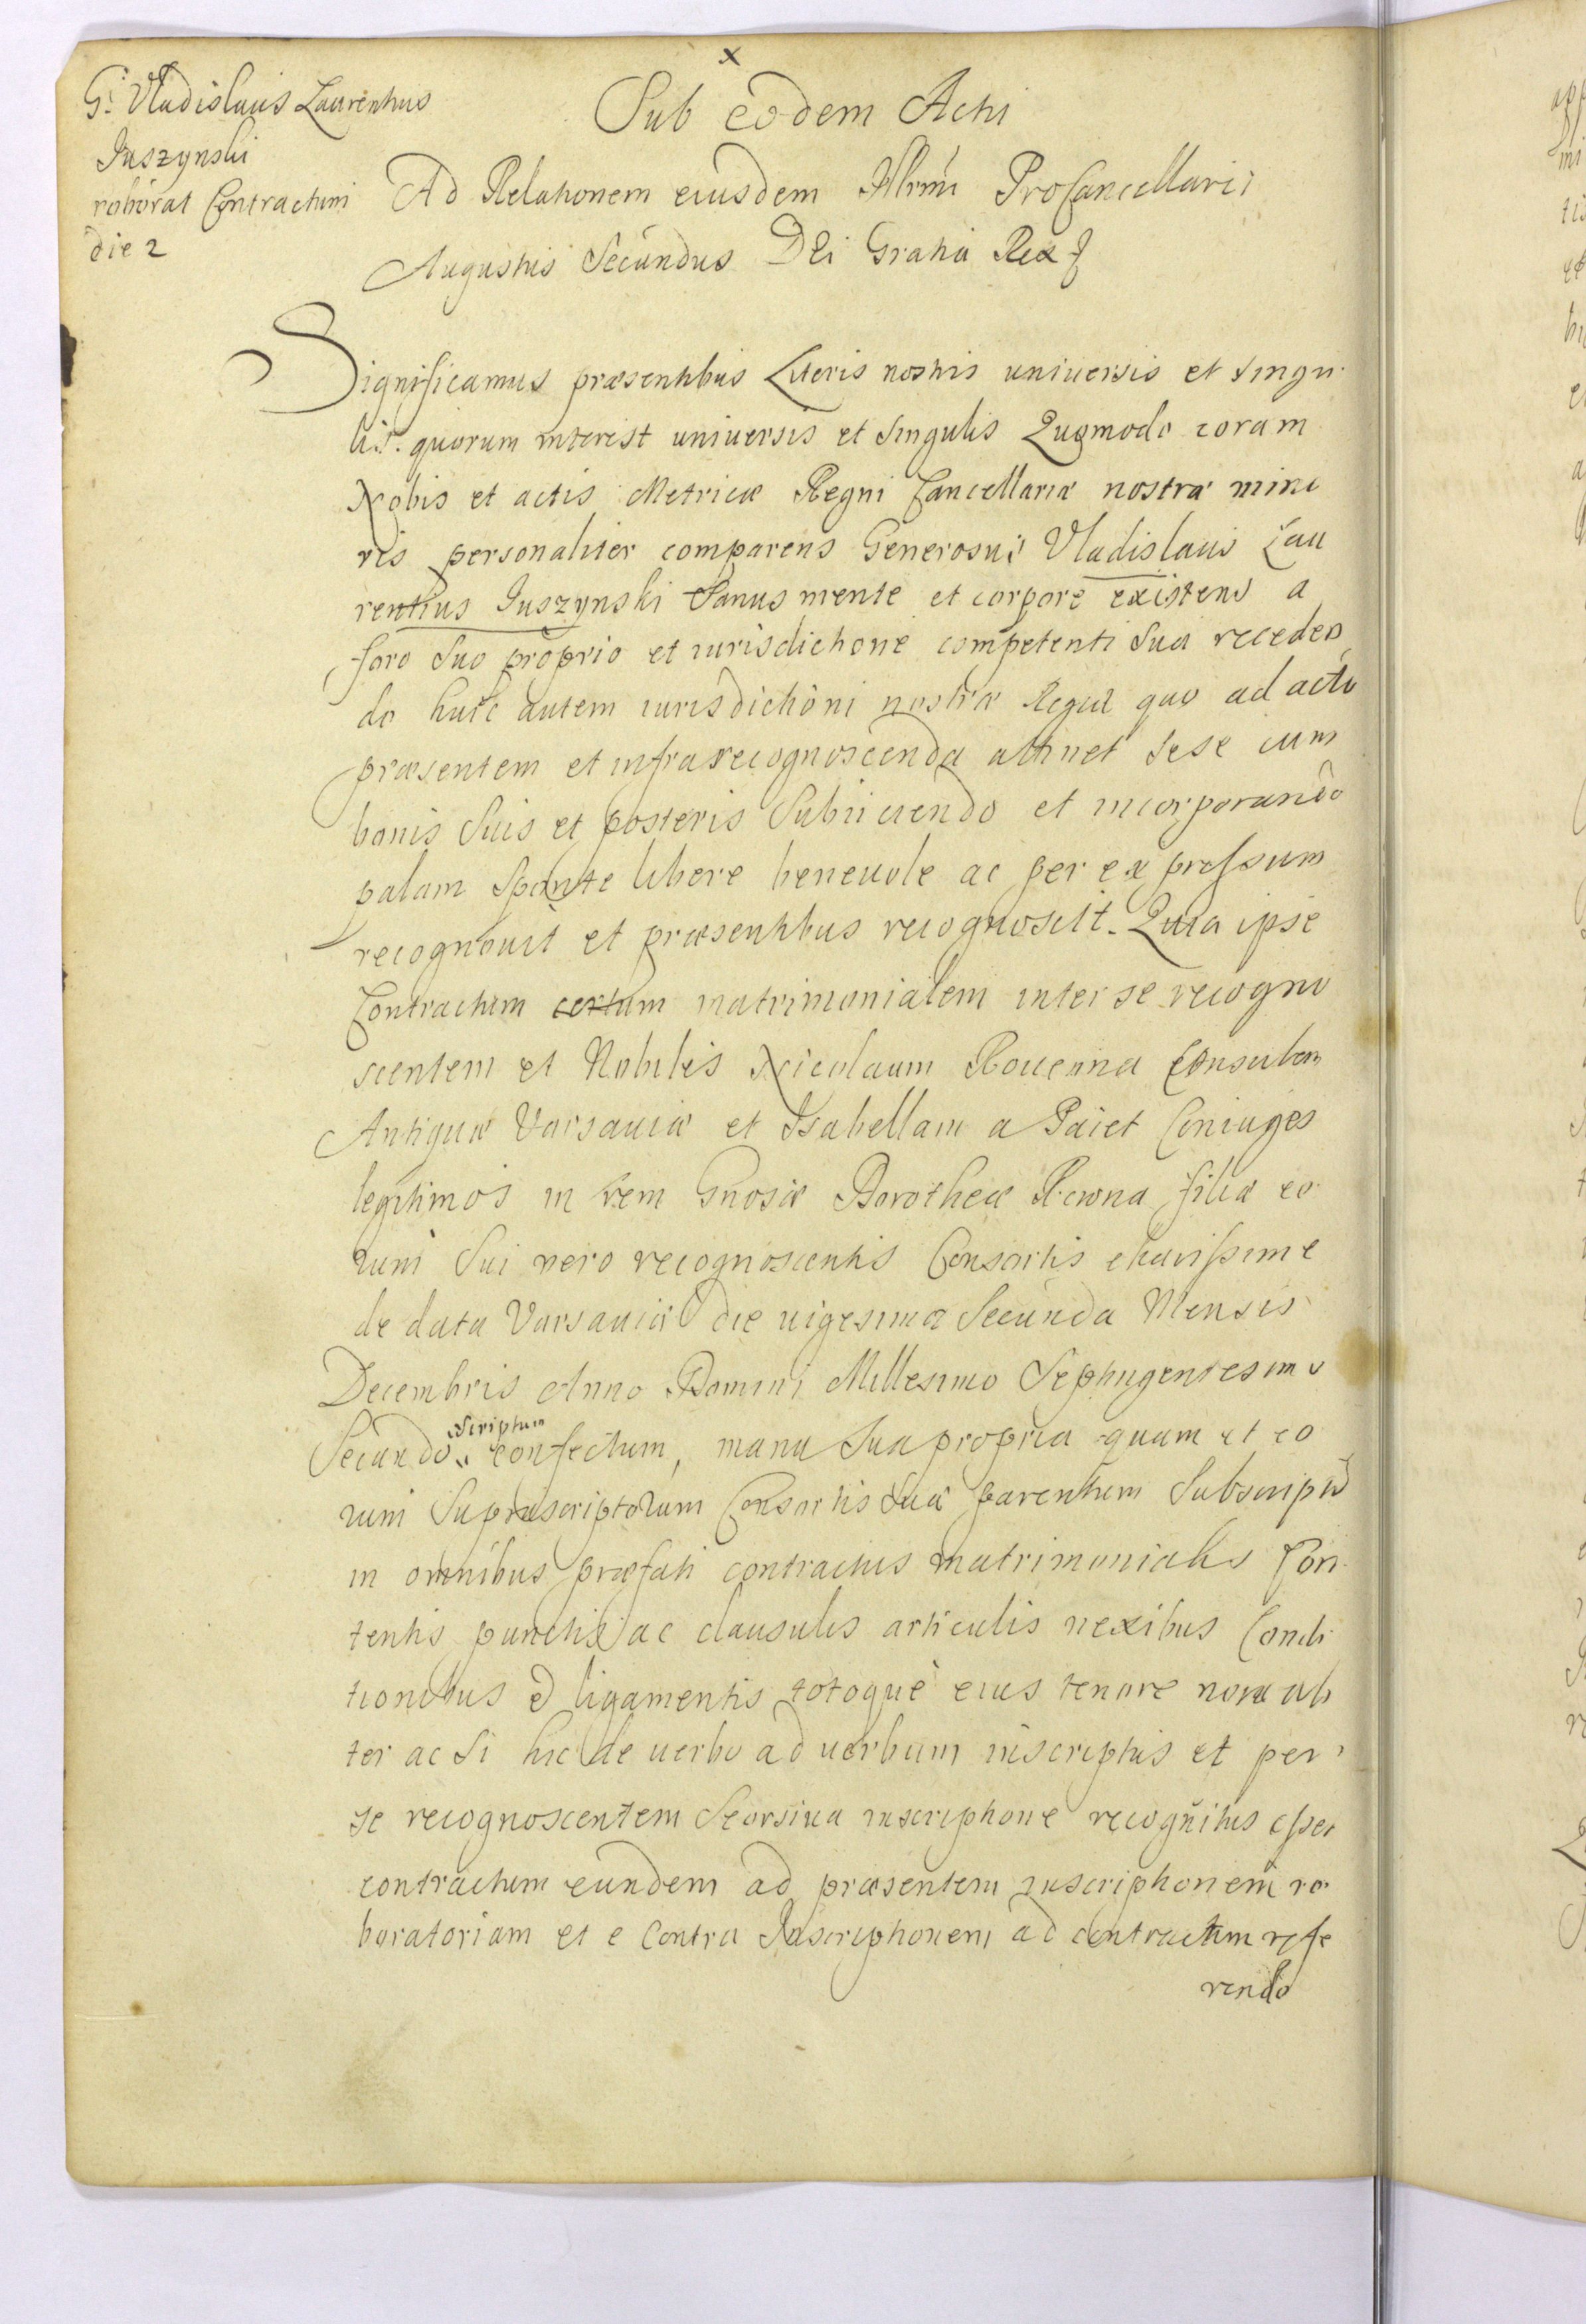 x
G: Vladislaus Laurentius
Juszynski
roborat Contractum
die 2
Sub eodem Actu
Ad Relationem eiusdem Illrmi ProCancellarii
Augustus Secundus Dei Gratia Rex
Significamus præsentibus Literis nostris universis et singu
lis. quorum interest universis et singulis Quomodo coram
Nobis et actis Metricæ Regni Cancellariæ nostræ mino
ris personaliter comparens Generosus Vladislaus Lau
rentius Juszynski Sanus mente et corpore existens a
foro suo proprio et iurisdictione competenti sua receden
do huic autem iurisdictioni nostræ Regiæ quo ad actu
præsentem et infrarecognoscenda attinet sese cum
bonis suis et posteris subiiciendo et incorporando
palam sponte libere benevole ac per expressum
recognovit et præsentibus recognoscit. Quia ipse
Contractum certum matrimonialem inter se recogno
scentem et Nobiles Nicolaum Rouenna Consulem
Antiquæ Varsaviæ et Isabellam a Paiet Coniuges
legitimos in rem Gnosæ Dorotheæ filiæ eo
rum sui vero recognoscentis Consortis charissime
de data Varsaviæ die vigesima secunda Mensis
Decembris Anno Domini Millesimo Septingentesimo
Scriptum
Secundo confectum, manu sua propria quam et eo
rum supra scriptorum Consortis suæ parentum subscriptu
in omnibus præfati contractus matrimonialis Con
tentis punctis ac clausulis articulis nexibus Condi
tionibus et ligamentis totoque eius tenore non ali
ter ac si hic de verbo ad verbum inscriptus et per
se recognoscentem seorsiva inscriptione recognitus esset
contractum eundem ad præsentem inscriptionem ro
boratoriam et e contra Inscriptionem ad contractum refe
rendo